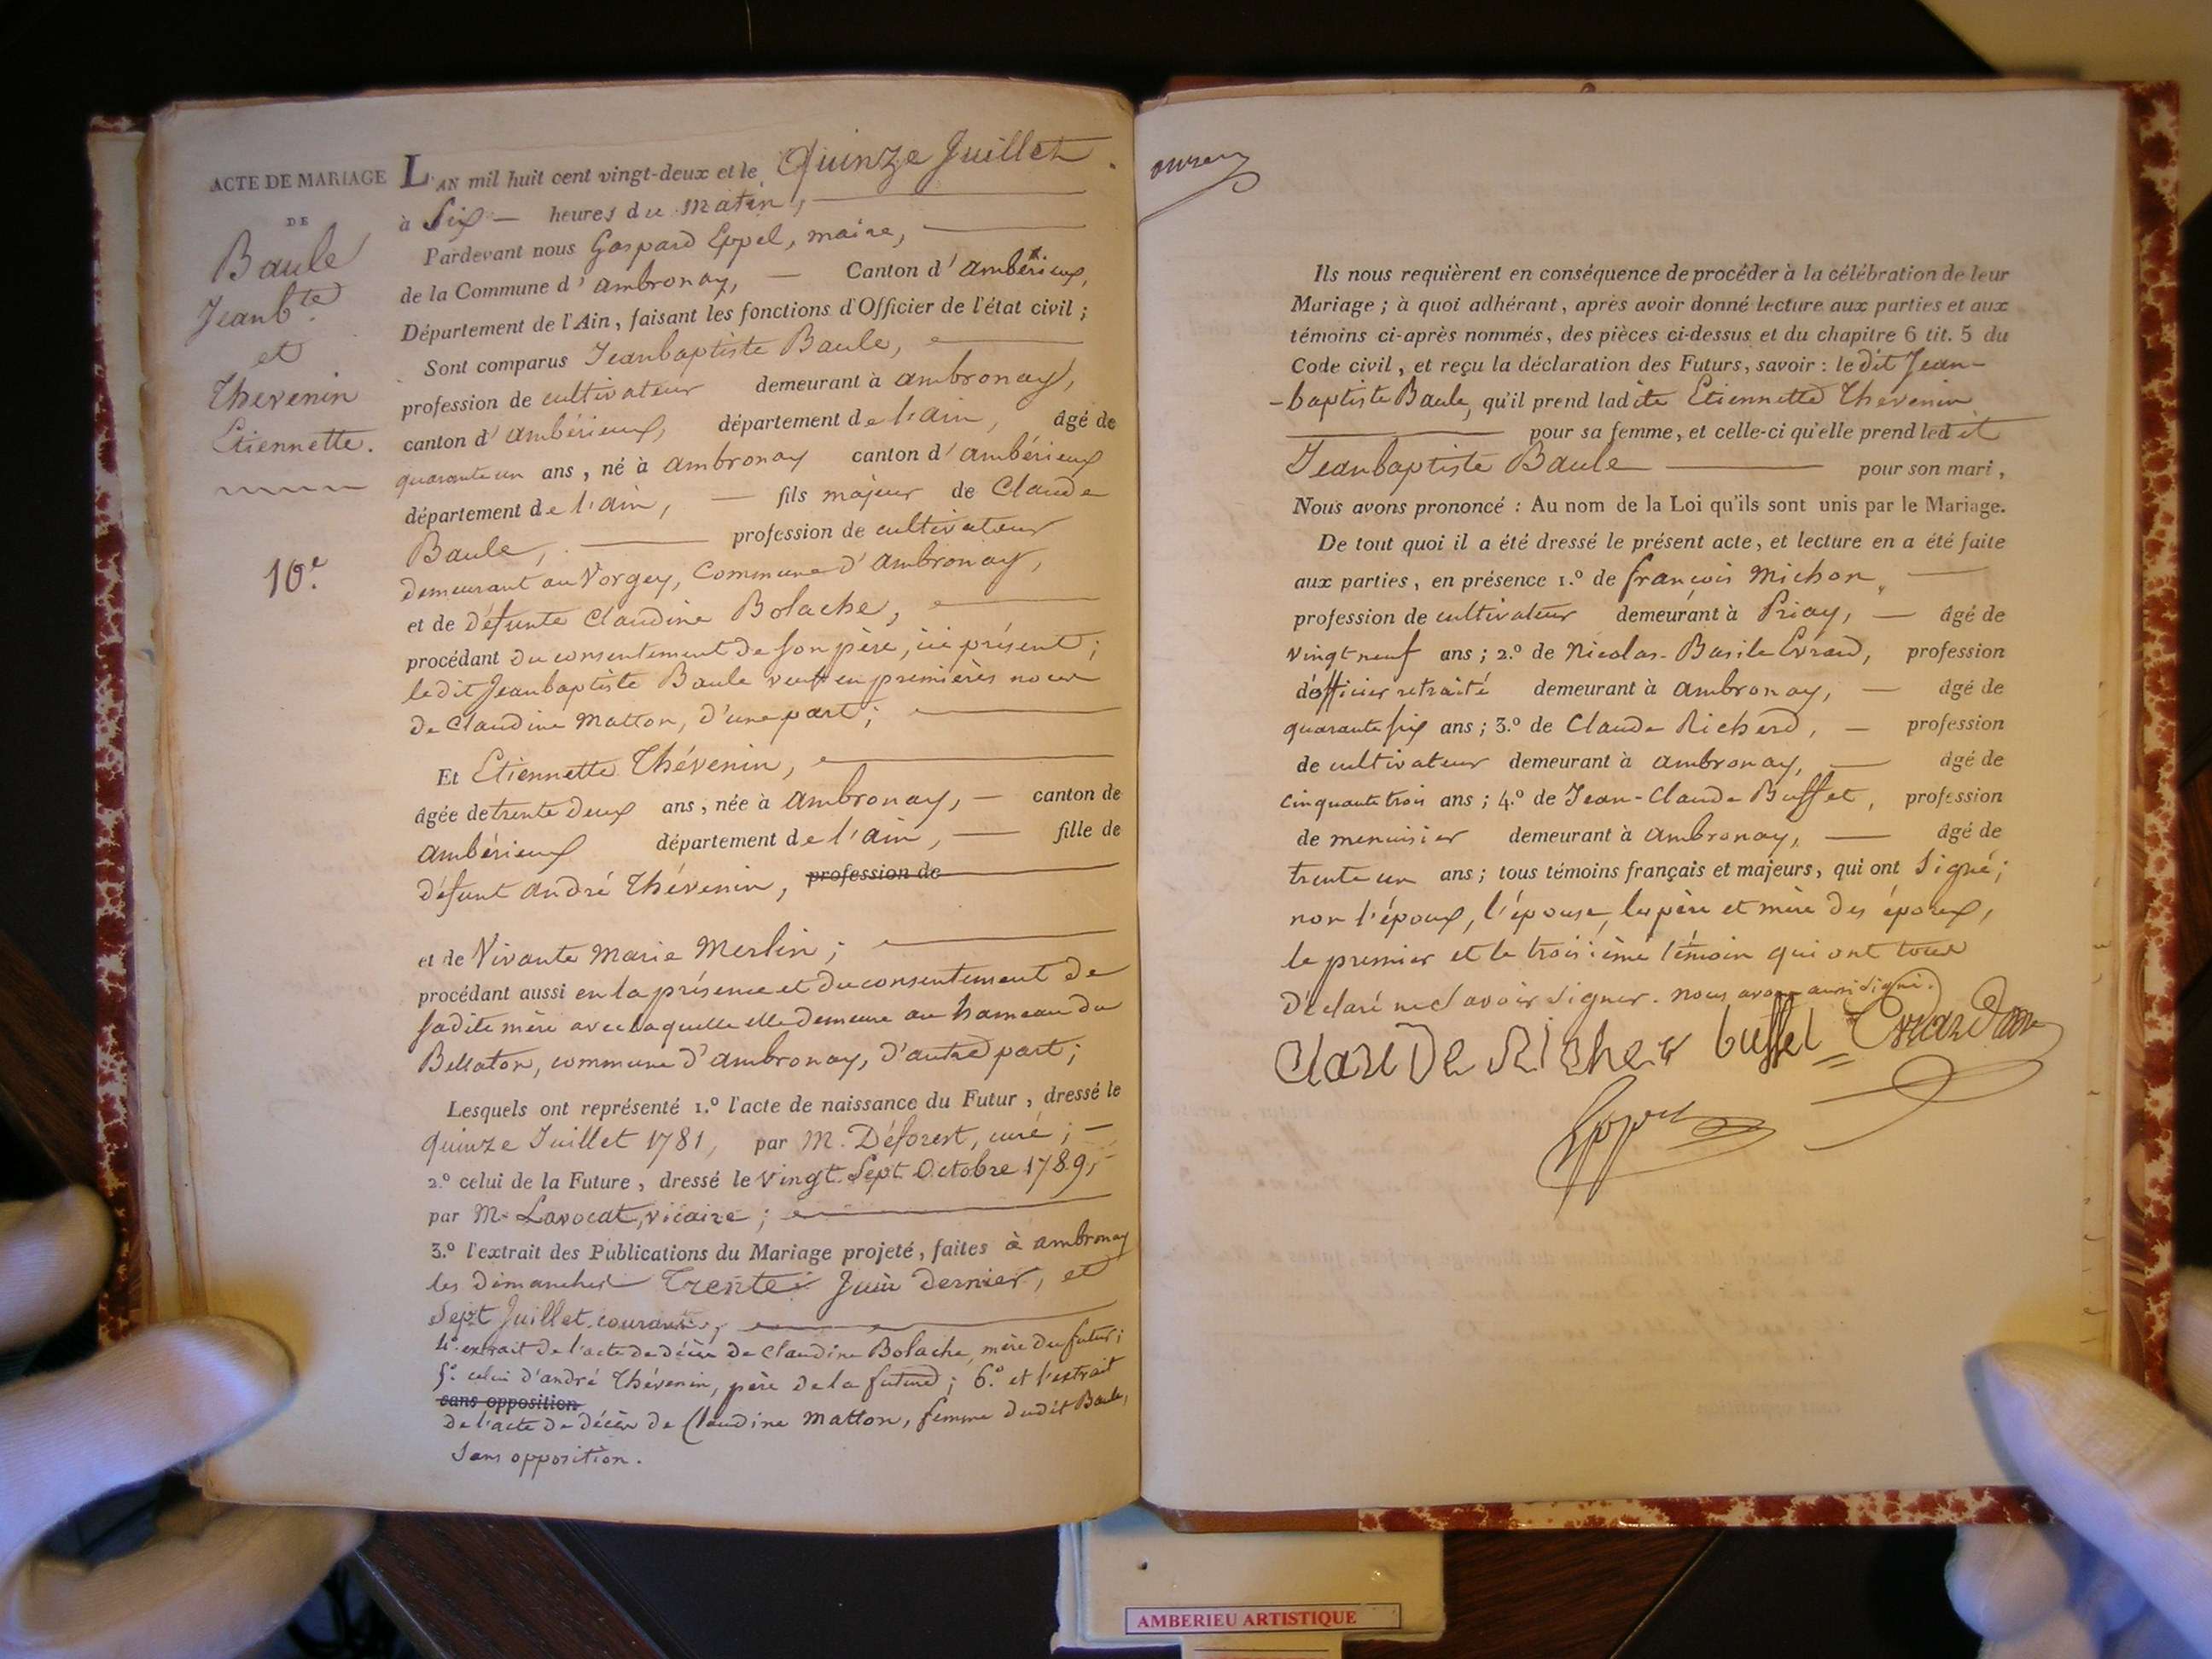 ACTE DE MARIAGE
DE
Baule
Jeanbte
et
Thevenin
Etiennette.
10e.
L'AN mil huit cent vingt-deux et le Quinze Juillet
à Six heures du matin,
Pardevant nous Gaspard Eppel, maire,
de la Commune d'ambronay, Canton d'ambérieux,
Département de l'Ain, faisant les fonctions d'Officier de l'état civil ;
Sont comparus Jeanbaptiste Baule,
profession de cultivateur demeurant à ambronay,
canton d'ambérieux, département de l'ain, âgé de
quarante un ans, né à ambronay canton d'ambérieux
département de l'ain, fils majeur de Claude
Baule, profession de cultivateur
demeurant au Vorgey, Commune d'ambronay,
et de défunte Claudine Bolache,
procédant du consentement de son père, ici présent ;
ledit Jeanbaptiste Baule veuf en premières noces
de Claudine Matton, d'une part ;
Et Etiennette Thévenin,
âgée de trente deux ans, née à ambronay, canton de
ambérieux département de l'ain, fille de
défunt andré Thévenin, profession de
et de Vivante Marie Merlin ;
procédant aussi en la présence et du consentement de
sadite mère avec laquelle elle demeure au hameau du
Bellaton, commune d'ambronay, d'autre part ;
Lesquels ont représenté 1.º l'acte de naissance du Futur, dressé le
quinze Juillet 1781, par M. Déforest, curé ;
2.º celui de la Future, dressé le vingt Sept Octobre 1789,
par M. Lavocat, vicaire ;
3.º l'extrait des Publications du Mariage projeté, faites à ambronay
les dimanches Trente Juin dernier, et
Sept Juillet courant,
4.º extrait de l'acte de décès de Claudine Bolache, mère du futur ;
5.º celui d'andré Thévenin, père de la future ; 6.º et l'extrait
sans opposition
de l'acte de décès de Claudine Matton, femme dudit Baule,
Sans opposition.
Ils nous requièrent en conséquence de procéder à la célébration de leur
Mariage ; à quoi adhérant, après avoir donné lecture aux parties et aux
témoins ci-après nommés, des pièces ci-dessus et du chapitre 6 tit. 5 du
Code civil, et reçu la déclaration des Futurs, savoir : le dit Jean-
-baptiste Baule, qu'il prend ladite Etiennette Thevenin
pour sa femme, et celle-ci qu'elle prend ledit
Jeanbaptiste Baule pour son mari,
Nous avons prononcé : Au nom de la Loi qu'ils sont unis par le Mariage.
De tout quoi il a été dressé le présent acte, et lecture en a été faite
aux parties, en présence 1.º de françois Michon,
profession de cultivateur demeurant à Priay, âgé de
vingt neuf ans ; 2.º de Nicolas-Basile Evrard, profession
d'officier retraité demeurant à ambronay, âgé de
quarante six ans ; 3.º de Claude Richerd, profession
de cultivateur demeurant à ambronay, âgé de
cinquante trois ans ; 4.º de Jean-Claude Buffet, profession
de menuisier demeurant à ambronay, âgé de
trente un ans ; tous témoins français et majeurs, qui ont signé ;
non l'époux, l'épouse, les père et mère des époux,
le premier et le troisième témoin qui ont tous
déclaré ne savoir signer. nous avons aussi signé.
Claude Richer buffet
Eppel
AMBERIEU ARTISTIQUE